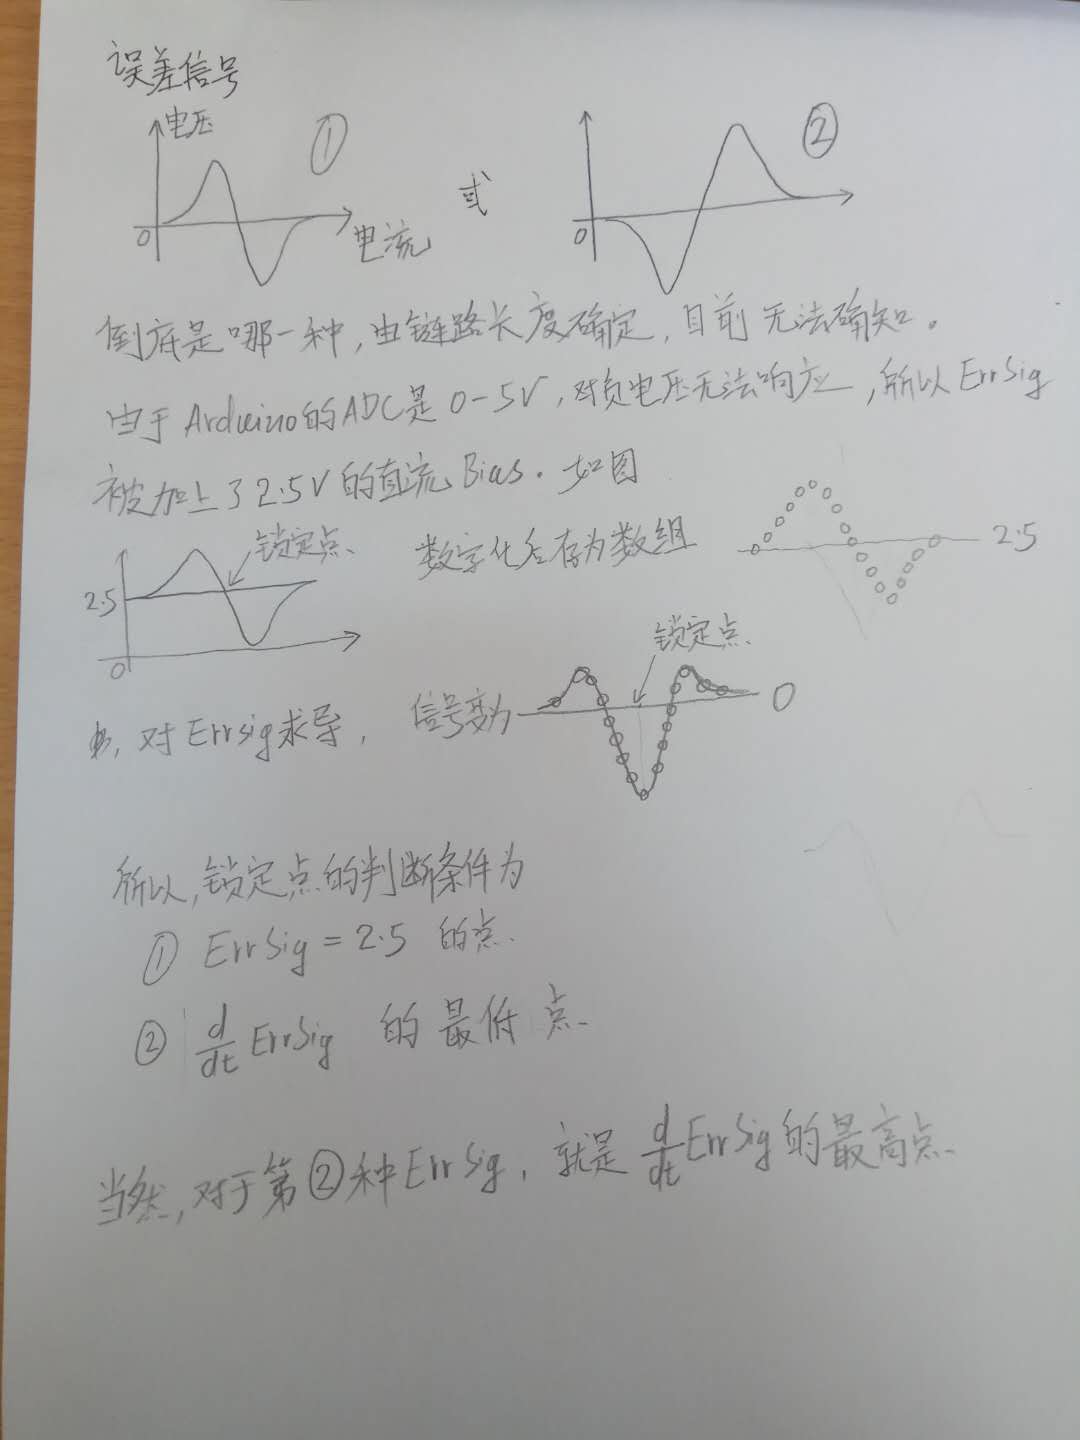 误差信号
电压 ① ②
或
0 电流 0
到底是哪一种，由链路长度确定，目前无法确知。
由于Arduino的ADC是0-5V，对负电压无法响应，所以ErrSig
被加上了2.5V的直流Bias。如图
锁定点 数字化后存为数组 2.5
2.5
0
锁定点
对Errsig求导，信号变为 0
所以，锁定点的判断条件为
① ErrSig = 2.5 的点
② d/dt ErrSig 的最低点
当然，对于第②种ErrSig，就是 d/dt ErrSig的最高点